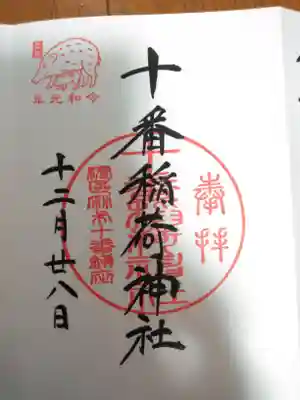 奉拝
十番稲荷神社
港区麻布十番鎮座
令和元年
十二月廿八日